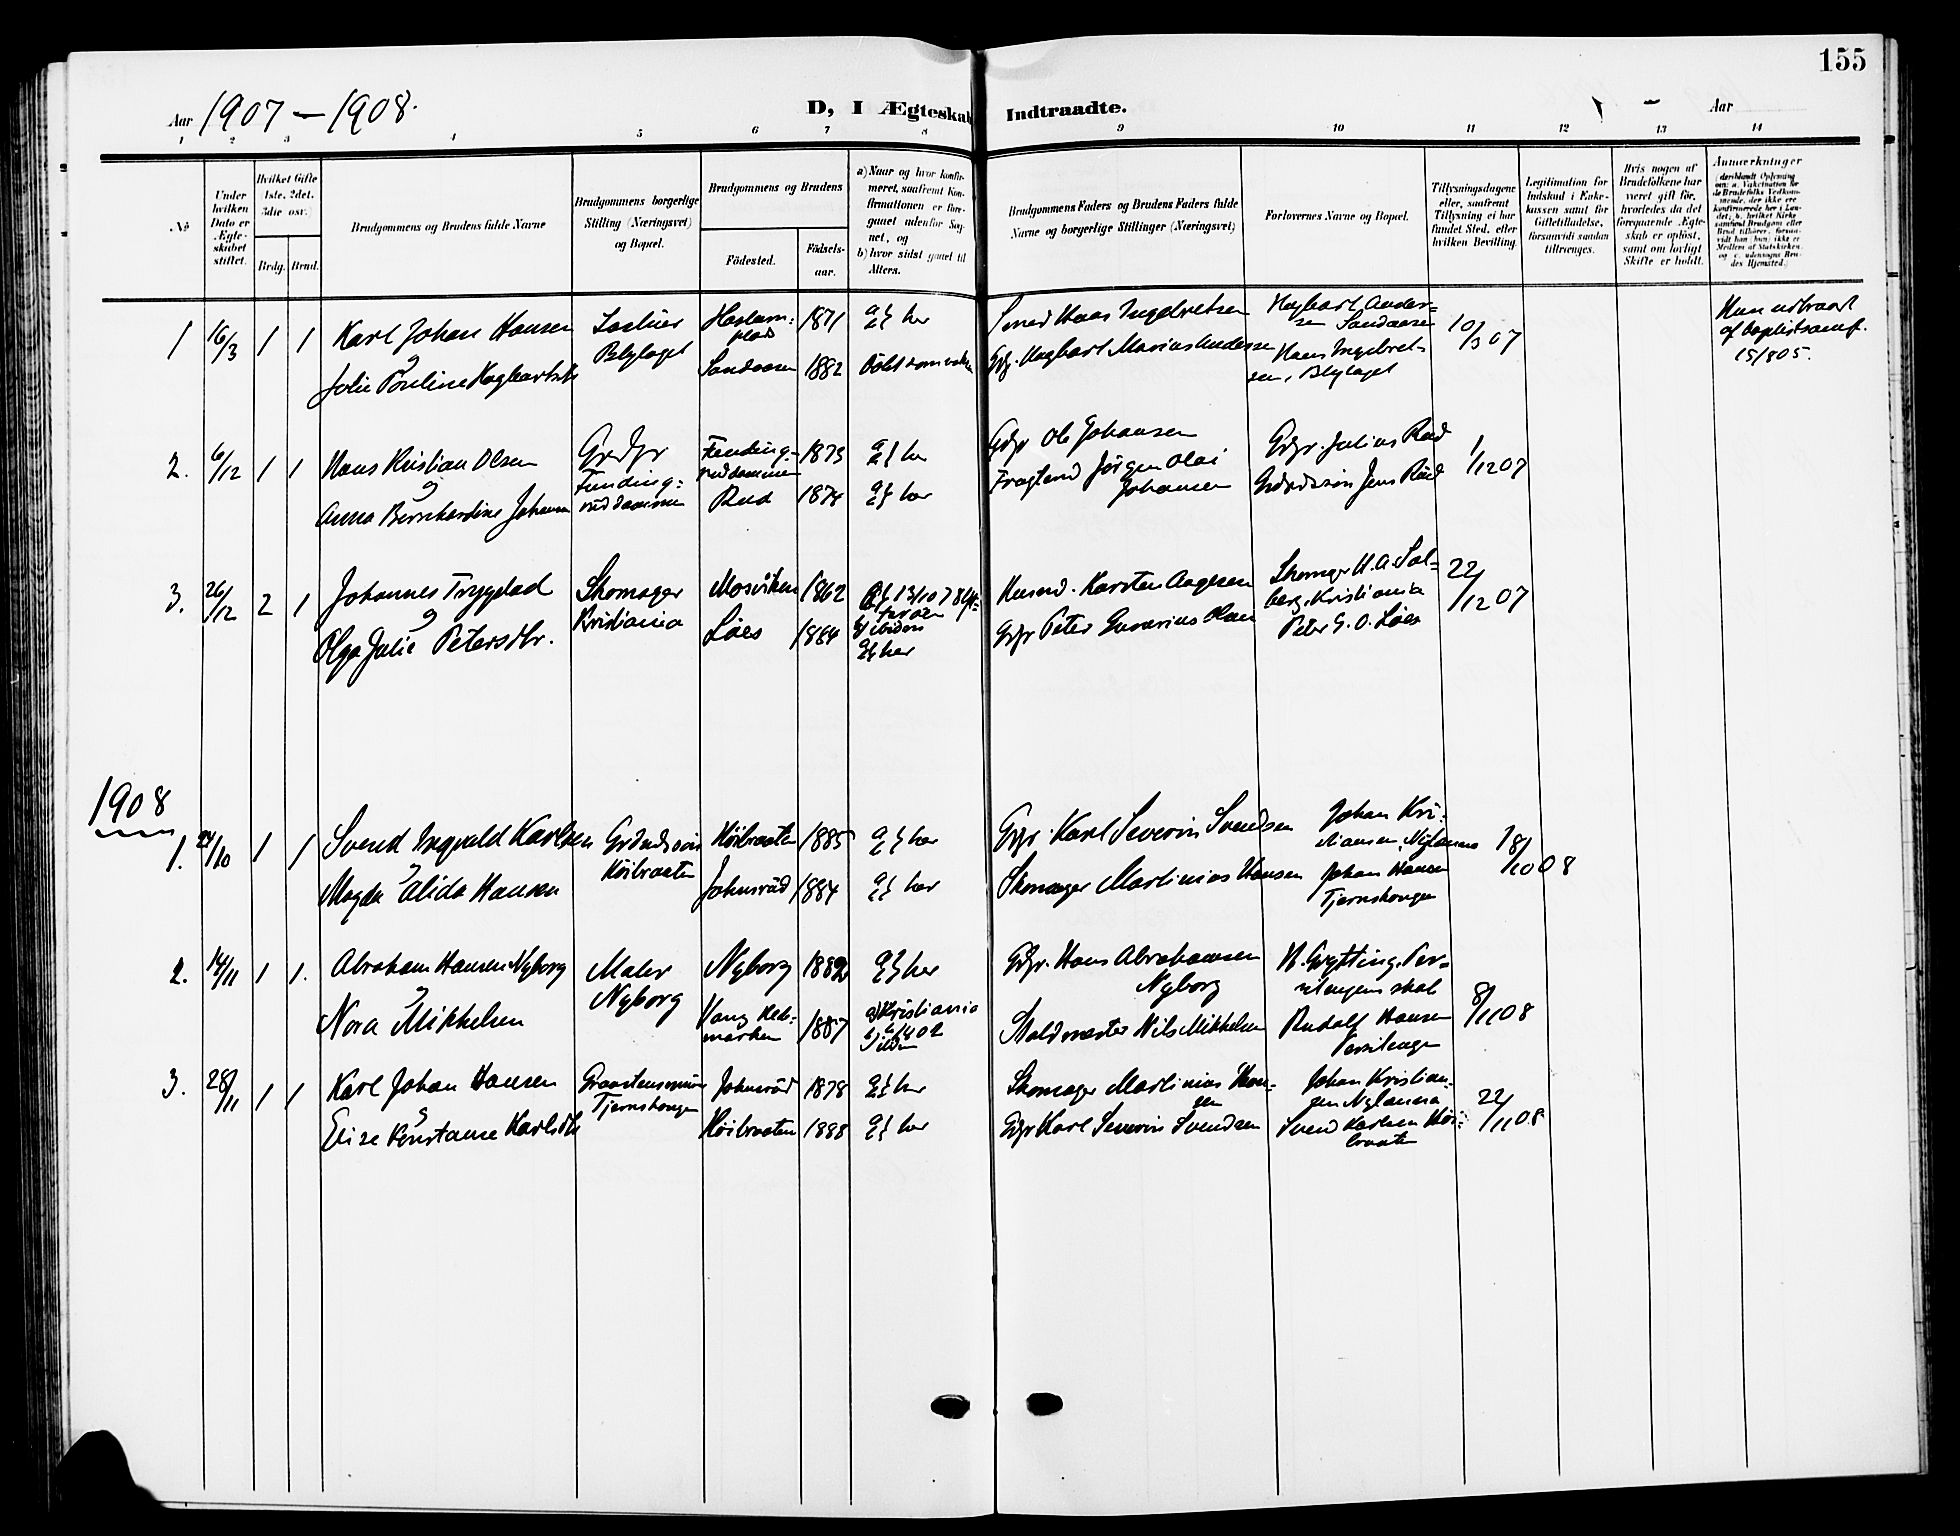 155
Aar 1907 – 1908.
D, I Ægteskab Indtraadte.
Aar
1 2 3 4 5 6 7 8 9 10 11 12 13 14
No
Under hvilken Dato er Ægteskabet stiftet.
Hvilket Gifte 1ste, 2det, 3die osv.)
Brdg. Brud.
Brudgommens og Brudens fulde Navne
Brudgommens borgerlige Stilling (Næringsvei) og Bopæl.
Brudgommens og Brudens
Fødested.
Fødselsaar.
a) Naar og hvor konfirmeret, saafremt Konfirmationen er foregaaet udenfor Sognet, og
b) hvor sidst gaaet til Alters.
Brudgommens Faders og Brudens Faders fulde Navne og borgerlige Stillinger (Næringsvei)
Forlovernes Navne og Bopæl.
Tillysningsdagene eller, saafremt Tillysning ei har fundet Sted, efter hvilken Bevilling.
Legitimation for Indskud i Enkekassen samt for Giftetilladelse, forsaavidt saadan tiltrænges.
Hvis nogen af Brudefolkene har været gift før, hvorledes da det foregaaende Ægteskab er opløst, samt om lovligt Skifte er holdt.
Anmærkninger
1 16/3 1 1
Karl Johan Hansen
Julie Pouline Hagbartsdtr
Blylaget
Sandaasen
1871
1882
a} her
Døbt som voksen
Smed Hans Ingebretsen
Gdr. Hagbart Marius Andersen
Hagbart Andersen Sandaasen
Hans Ingebretsen, Blylaget
10/3 07
Hun udtraadt
af baptistsamf.
15/8 05.
2. 6/12 1 1
Hans Kristian Olsen
og
Anna Bernhardine Johansen
Grdgr
Fundingruddammen
Fundingruddammen
Rud
1873
1874
a} her
a} her
Gdgr Ole Johansen
Jørgen Olai
Johansen
Gdgr. Julius Rud
Grdmdssøn Jens Rud
1/12 07
3. 26/12 2 1
Johannes Trygstad
og
Olga Julie Petersdtr.
Skomager
Kristiania
Mosviken
Løes
1862
1884
her
Husmd. Karsten Aagesen
Gdgr Peter Olsen
Skomager H. A. Solberg, Kristiania
Peter G. O. Løes
22/12 07
1908
1. 24/10 1 1
Svend Ingvald Karlsen
og
Magda Alida Hansen
Grdmdssøn
Høibraaten
Høibraaten
Johnsrud
1885
1884
a} her
a} her
Gdgr. Karl Severin Svendsen
Skomager Martinius Hansen
Johan Kristiansen, Nylænna
Johan Hansen
Tjernshaugen
18/10 08
2. 14/11 1 1.
Abraham Hansen Nyborg
og
Nora Mikkelsen
Maler
Nyborg
Nyborg
Vang Hedemarken
1882
1887
a} her
a) Kristiania
Gdgr. Hans Abrahamsen
Nyborg
Staldmester Nils Mikkelsen
H. Grytting,
Rudolf Hansen
8/11 08
3. 28/11 1 1
Karl Johan Hansen
og
Elise Konstanse Karlsdtr
Tjernshaugen
Johnsrud
Høibraaten
1878
1888
a} her
a} her
Skomager Martinius Hansen
Gdgr Karl Severin Svendsen
Johan Kristiansen Nylænna
Svend Karlsen Høibraaten
22/11 08